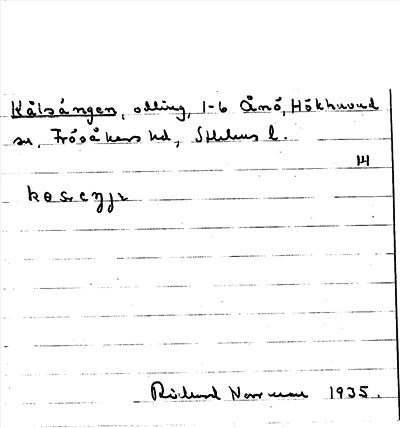 Kålsängen, odling, 1-6 Ånö, Hökhuvud
sn, Frösåkers hd, Sthlms l.
14
Richard Norrman 1935.